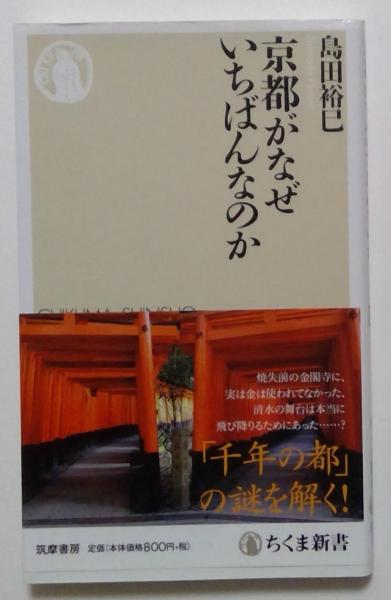 島田裕巳
京都がなぜ
いちばんなのか
CHIKUMA SHINSHO
焼失前の金閣寺に、
実は金は使われてなかった、
清水の舞台は本当に
飛び降りるためにあった……?
「千年の都」
の謎を解く!
筑摩書房 定価(本体価格800円+税)
ちくま新書